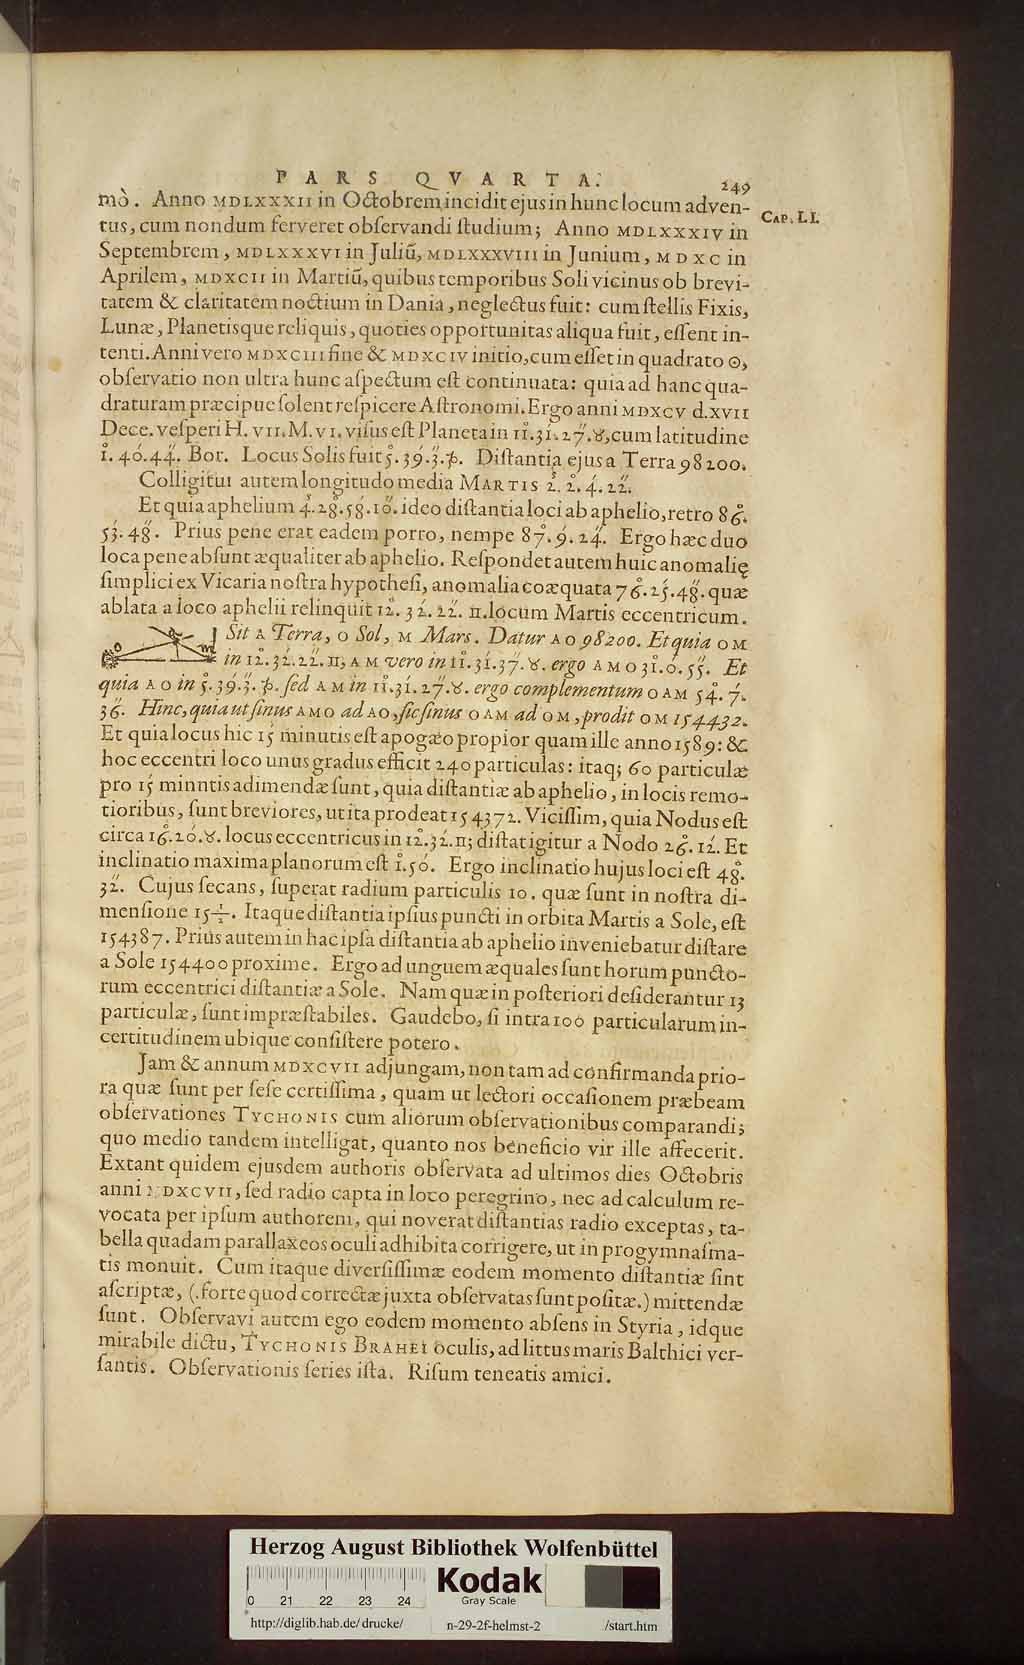 PARS QVARTA.
249
mò. Anno MDLXXXII in Octobrem incidit ejus in hunc locum adven-
CAP. LI.
tus, cum nondum ferveret obſervandi ſtudium; Anno MDLXXXIV in
Septembrem, MDLXXXVI in Juliũ, MDLXXXVIII in Junium, MDXC in
Aprilem, MDXCII in Martiũ, quibus temporibus Soli vicinus ob brevi-
tatem & claritatem noctium in Dania, neglectus fuit: cum ſtellis Fixis,
Lunæ, Planetisque reliquis, quoties opportunitas aliqua fuit, eſſent in-
tenti. Anni vero MDXCIII fine & MDXCIV initio, cum eſſet in quadrato ☉,
obſervatio non ultra hunc aſpectum eſt continuata: quia ad hanc qua-
draturam præcipue ſolent reſpicere Aſtronomi. Ergo anni MDXCV d. XVII
Dece. veſperi H. VII. M. VI. viſus eſt Planeta in 11°. 31′. 27″. ♉, cum latitudine
1°. 40′. 44″. Bor. Locus Solis fuit 5°. 39′. 3″. ♑. Diſtantia ejus a Terra 98200.
Colligitur autem longitudo media MARTIS 2ˢ. 2°. 4′. 22″.
Et quia aphelium 4ˢ. 28°. 58′. 10″. ideo diſtantia loci ab aphelio, retro 86°.
53′. 48″. Prius pene erat eadem porro, nempe 87°. 9′. 24″. Ergo hæc duo
loca pene abſunt æqualiter ab aphelio. Reſpondet autem huic anomalię
ſimplici ex Vicaria noſtra hypotheſi, anomalia coæquata 76°. 25′. 48″. quæ
ablata a loco aphelii relinquit 12°. 32′. 22″. ♊. locum Martis eccentricum.
Sit A Terra, O Sol, M Mars. Datur AO 98200. Et quia OM
in 12°. 32′. 22″. ♊, AM vero in 11°. 31′. 37″. ♉. ergo AMO 31°. 0′. 55″. Et
quia AO in 5°. 39′. 3″. ♑. ſed AM in 11°. 31′. 27″. ♉. ergo complementum OAM 54°. 7′.
36″. Hinc, quia ut ſinus AMO ad AO, ſic ſinus OAM ad OM, prodit OM 154432.
Et quia locus hic 15′ minutis eſt apogæo propior quam ille anno 1589: &
hoc eccentri loco unus gradus efficit 240 particulas: itaq; 60 particulæ
pro 15′ minntis adimendæ ſunt, quia diſtantiæ ab aphelio, in locis remo-
tioribus, ſunt breviores, ut ita prodeat 154372. Viciſſim, quia Nodus eſt
circa 16°. 20′. ♉. locus eccentricus in 12°. 32′. ♊; diſtat igitur a Nodo 26°. 12′. Et
inclinatio maxima planorum eſt 1°. 50′. Ergo inclinatio hujus loci eſt 48′.
32″. Cujus ſecans, ſuperat radium particulis 10. quæ ſunt in noſtra di-
menſione 15½. Itaque diſtantia ipſius puncti in orbita Martis a Sole, eſt
154387. Prius autem in hac ipſa diſtantia ab aphelio inveniebatur diſtare
a Sole 154400 proxime. Ergo ad unguem æquales ſunt horum puncto-
rum eccentrici diſtantiæ a Sole. Nam quæ in poſteriori deſiderantur 13
particulæ, ſunt impræſtabiles. Gaudebo, ſi intra 100 particularum in-
certitudinem ubique conſiſtere potero.
Jam & annum MDXCVII adjungam, non tam ad confirmanda prio-
ra quæ ſunt per ſeſe certiſſima, quam ut lectori occaſionem præbeam
obſervationes TYCHONIS cum aliorum obſervationibus comparandi;
quo medio tandem intelligat, quanto nos beneficio vir ille affecerit.
Extant quidem ejusdem authoris obſervata ad ultimos dies Octobris
anni MDXCVII, ſed radio capta in loco peregrino, nec ad calculum re-
vocata per ipſum authorem, qui noverat diſtantias radio exceptas, ta-
bella quadam parallaxeos oculi adhibita corrigere, ut in progymnaſma-
tis monuit. Cum itaque diverſiſſimæ eodem momento diſtantiæ ſint
aſcriptæ, (forte quod correctæ juxta obſervatas ſunt poſitæ.) mittendæ
ſunt. Obſervavi autem ego eodem momento abſens in Styria, idque
mirabile dictu, TYCHONIS BRAHEI oculis, ad littus maris Balthici ver-
ſantis. Obſervationis ſeries iſta. Riſum teneatis amici.
Herzog August Bibliothek Wolfenbüttel
Kodak
Gray Scale
0 21 22 23 24
http://diglib.hab.de/drucke/ n-29-2f-helmst-2 /start.htm